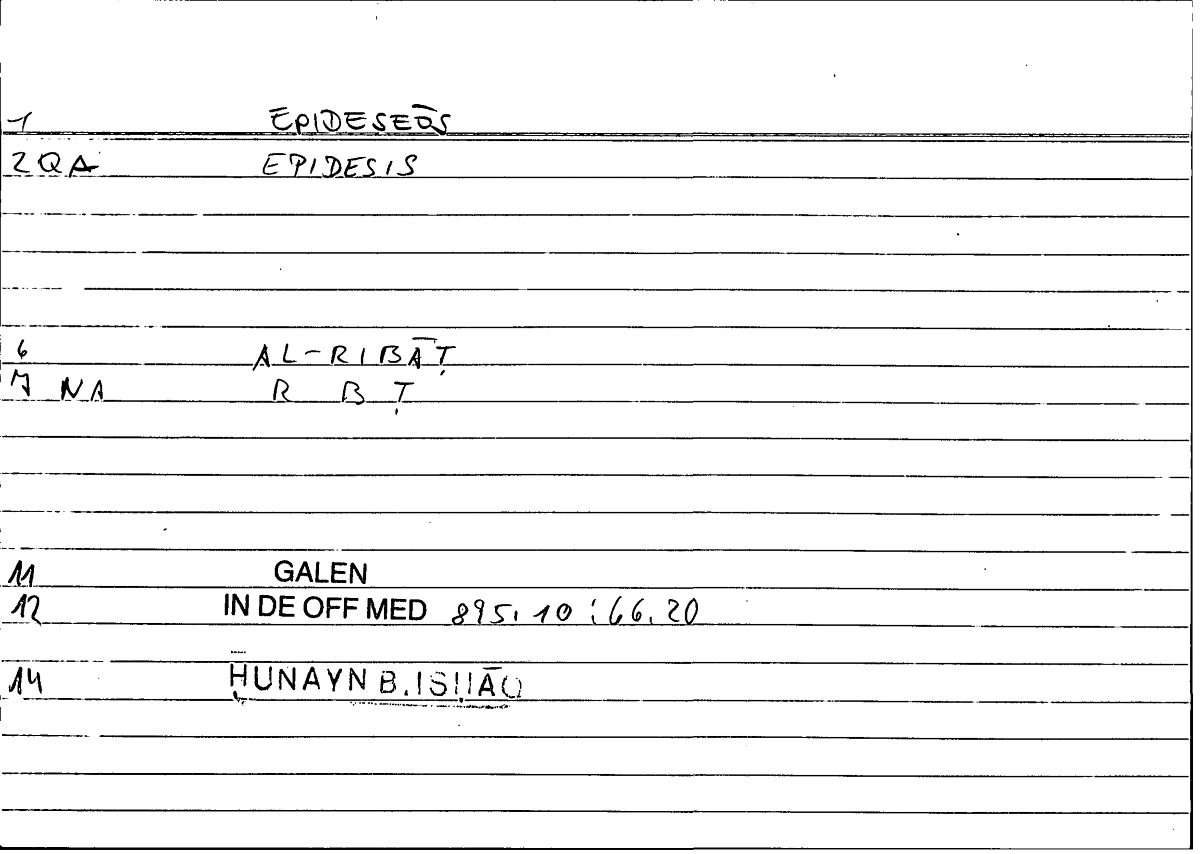 1 EPIDESEŌS
2 QA EPIDESIS
6 AL-RIBĀṬ
7 NA R B Ṭ
11 GALEN
12 IN DE OFF MED 895,10 : 66.20
14 ḤUNAYN B. ISḤĀQ